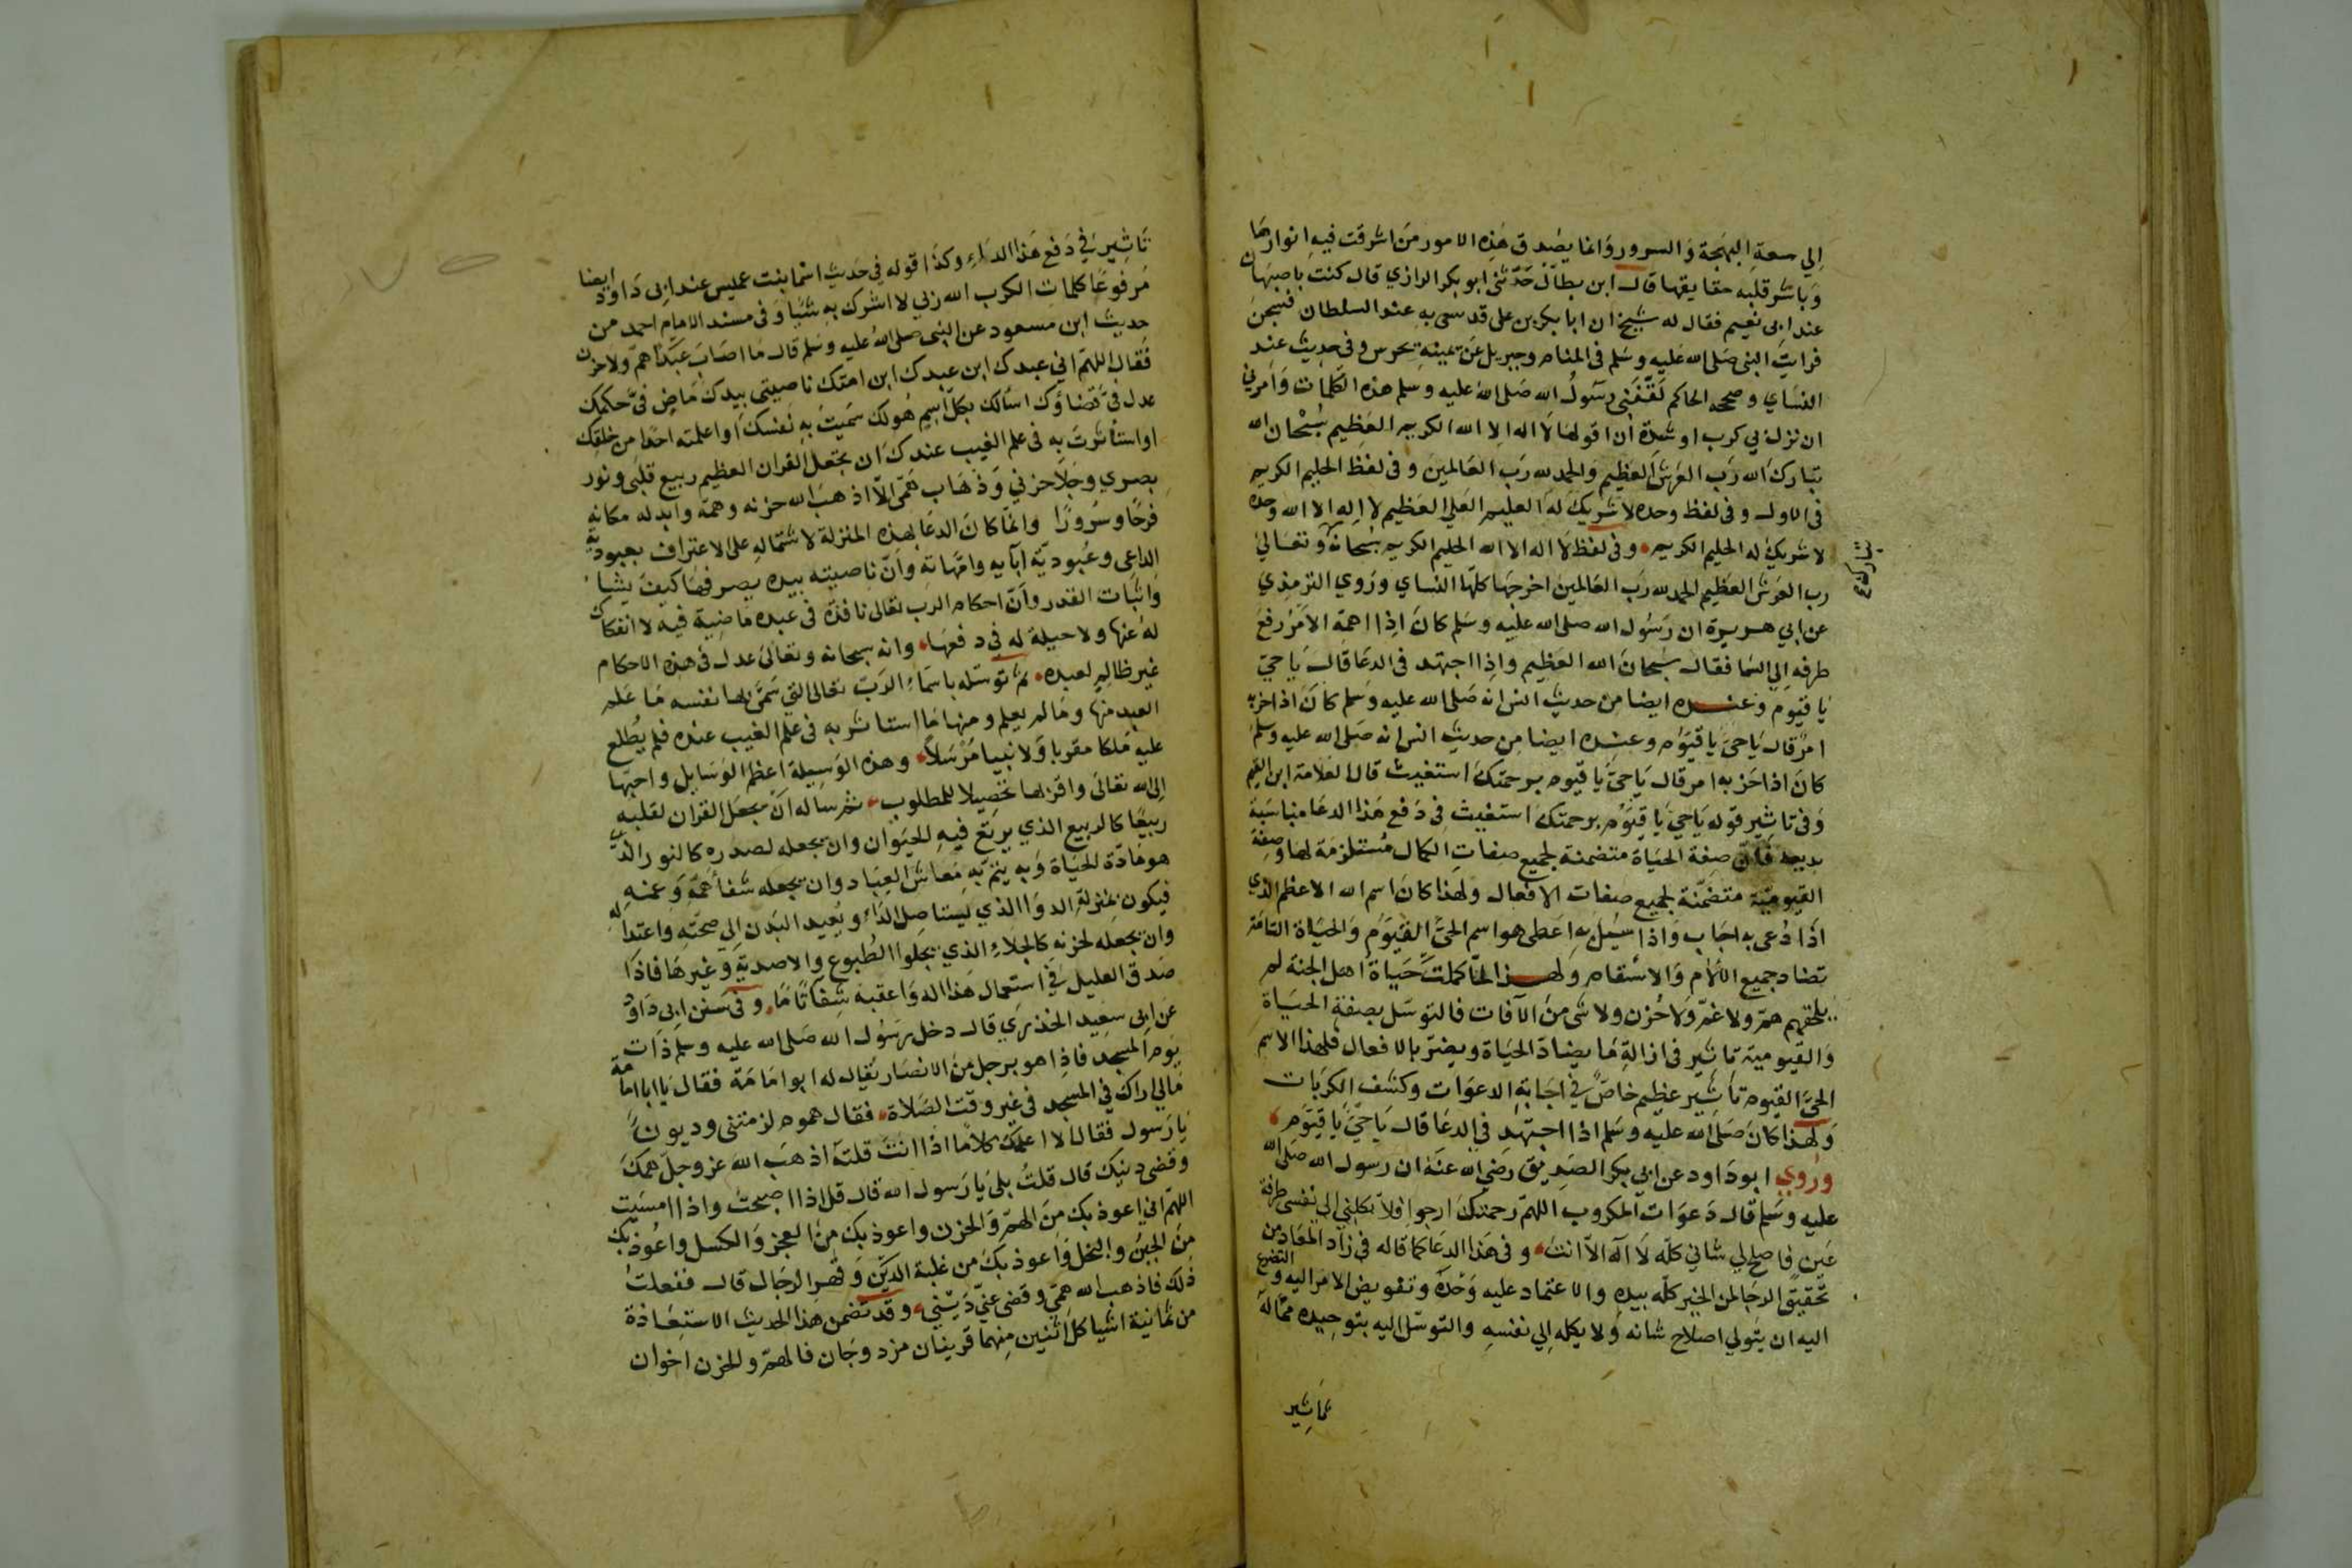 إلي سعةِ البهجة والسرور وانما يصدق هذه الامور من اشرقت فيه انوارها
وباشر قلبه حقايقها قال ابن بطال حدثني ابو بكر الرازي قال كنت باصبهان
عند ابي نعيم فقال له شيخ ان ابا بكر بن علي قد سعى به عند السلطان فسجن
فرايت النبي صلى الله عليه وسلم في المنام وجبريل عن يمينه
النساي وصححه الحاكم لقنني رسول الله صلى الله عليه وسلم هذه الكلمات وامرني
ان نزل بي كرب او شدة ان اقولها لا اله الا الله الكريم العظيم سبحان الله
تبارك الله رب العرش العظيم والحمد لله رب العالمين وفي لفظ الحليم الكريم
في الاول وفي لفظ وحده لا شريك له العليم العلي العظيم لا اله الا الله وحده
لا شريك له الحليم الكريم وفي لفظ لا اله الا الله الحليم الكريم سبحانه وتعالى
تبارك
رب العرش العظيم الحمد لله رب العالمين اخرجها كلها النساي وروي الترمذي
عن ابي هريرة ان رسول الله صلى الله عليه وسلم كان اذا اهمه الامر رفع
طرفه الي السما فقال سبحان الله العظيم واذا اجتهد في الدعا قال يا حي
يا قيوم وعنده ايضا من حديث انس انه صلى الله عليه وسلم كان اذا حزبه
امر قال يا حي يا قيوم وعنده ايضا من حديث انس انه صلى الله عليه وسلم
كان اذا حزبه امر قال يا حي يا قيوم برحمتك استغيث قال العلامة ابن القيم
وفي تاثير قوله يا حي يا قيوم برحمتك استغيث في دفع هذا الدعا مناسبة
بديعة فان صفة الحياة متضمنة لجميع صفات الكمال مستلزمة لها وصفة
القيومية متضمنة لجميع صفات الافعال ولهذا كان اسم الله الاعظم الذي
اذا دعى به اجاب واذا سئل به اعطى هو اسم الحي القيوم والحياة التامة
تضاد جميع الآلام والاسقام ولهذا لما كملت حياة اهل الجنة لم
يلحقهم هم ولا غم ولا حزن ولا شي من الآفات فالتوسل بصفة الحياة
والقيومية تاثير في ازالة ما يضاد الحياة ويضر بالافعال فلهذا الاسم
الحي القيوم تاثير عظيم خاص في اجابة الدعوات وكشف الكربات
ولهذا كان صلى الله عليه وسلم اذا اجتهد في الدعا قال يا حي يا قيوم
وروي ابو داود عن ابي بكر الصديق رضي الله عنه ان رسول الله صلى الله
عليه وسلم قال دعوات المكروب اللهم رحمتك ارجوا فلا تكلني الى نفسي طرفة
عين فاصلح لي شاني كله لا اله الا انت وفي هذا الدعا كما قاله في زاد المعاد من
تحقيق الرجا لمن الخير كله بيده والاعتماد عليه وحده وتفويض الامر اليه والتضرع
اليه ان يتولي اصلاح شانه ولا يكله الي نفسه والتوسل اليه بتوحيده مما له
تاثير
تاثير في دفع هذا الداء وكذا قوله في حديث اسما بنت عميس عند ابي داود ايضا
مرفوعا كلمات الكرب الله ربي لا اشرك به شيئا وفي مسند الامام احمد من
حديث ابن مسعود عن النبي صلى الله عليه وسلم قال ما اصاب عبدا هم ولا حزن
فقال اللهم اني عبدك ابن عبدك ابن امتك ناصيتى بيدك ماض في حكمك
عدل في قضاؤك اسالك بكل اسم هو لك سميت به نفسك او اعلمته احدا من خلقك
او استأثرت به في علم الغيب عندك ان تجعل القران العظيم ربيع قلبي ونور
بصري وجلا حزني وذهاب همي الا اذهب الله حزنه وهمه وابدله مكانه
فرحا وسرورا وانما كان الدعا بهذه المنزلة لاشتماله على الاعتراف بعبودية
الداعى وعبودية آبايه وامهاته وان ناصيته بيده يصرفها كيف يشا
واثبات القدر وان احكام الرب تعالى نافذة في عبده ماضية فيه لا انفكاك
له عنها ولا حيلة له في دفعها وانه سبحانه وتعالى عدل في هذه الاحكام
غير ظالم لعبده ثم توسله باسماء الرب تعالى التي سمى بها نفسه ما علم
العبد منها وما لم يعلم ومنها ما استاثر به في علم الغيب عنده فلم يطلع
عليه ملكا مقربا ولا نبيا مرسلا وهذه الوسيلة اعظم الوسايل واحبها
الى الله تعالى واقربها تحصيلا للمطلوب ثم ساله ان يجعل القران لقلبه
ربيعا كالربيع الذي يرتع فيه الحيوان وان يجعله لصدره كالنور الذي
هو مادة الحياة وبه يتم به معاش العباد وان يجعله شفا همه وغمه
فيكون بمنزلة الدوا الذي يستاصل الداء ويعيد البدن الي صحته واعتداله
وان يجعله لحزنه كالجلاء الذي يجلوا الطبوع والاصدية وغيرها فاذا
صدق العليل في استعمال هذا الدوا اعقبه شفا تاما وفي سنن ابي داود
عن ابي سعيد الخدري قال دخل رسول الله صلى الله عليه وسلم ذات
يوم المسجد فاذا هو برجل من الانصار يقال له ابو امامة فقال يا ابا امامة
مالي اراك في المسجد في غير وقت الصلاة فقال هموم لزمتني وديون
يا رسول فقال الا اعلمك كلاما اذا انت قلته اذهب الله عز وجل همك
وقضى دينك قال قلت بلى يا رسول الله قال قل اذا اصبحت واذا امسيت
اللهم اني اعوذ بك من الهم والحزن واعوذ بك من العجز والكسل واعوذ بك
من الجبن والبخل واعوذ بك من غلبة الدين وقهر الرجال قال ففعلت
ذلك فاذهب الله همي وقضى عني ديني وقد تضمن هذا الحديث الاستعاذة
من ثمانية اشيا كل اثنين منهما قرينان مزدوجان فالهم والحزن اخوان